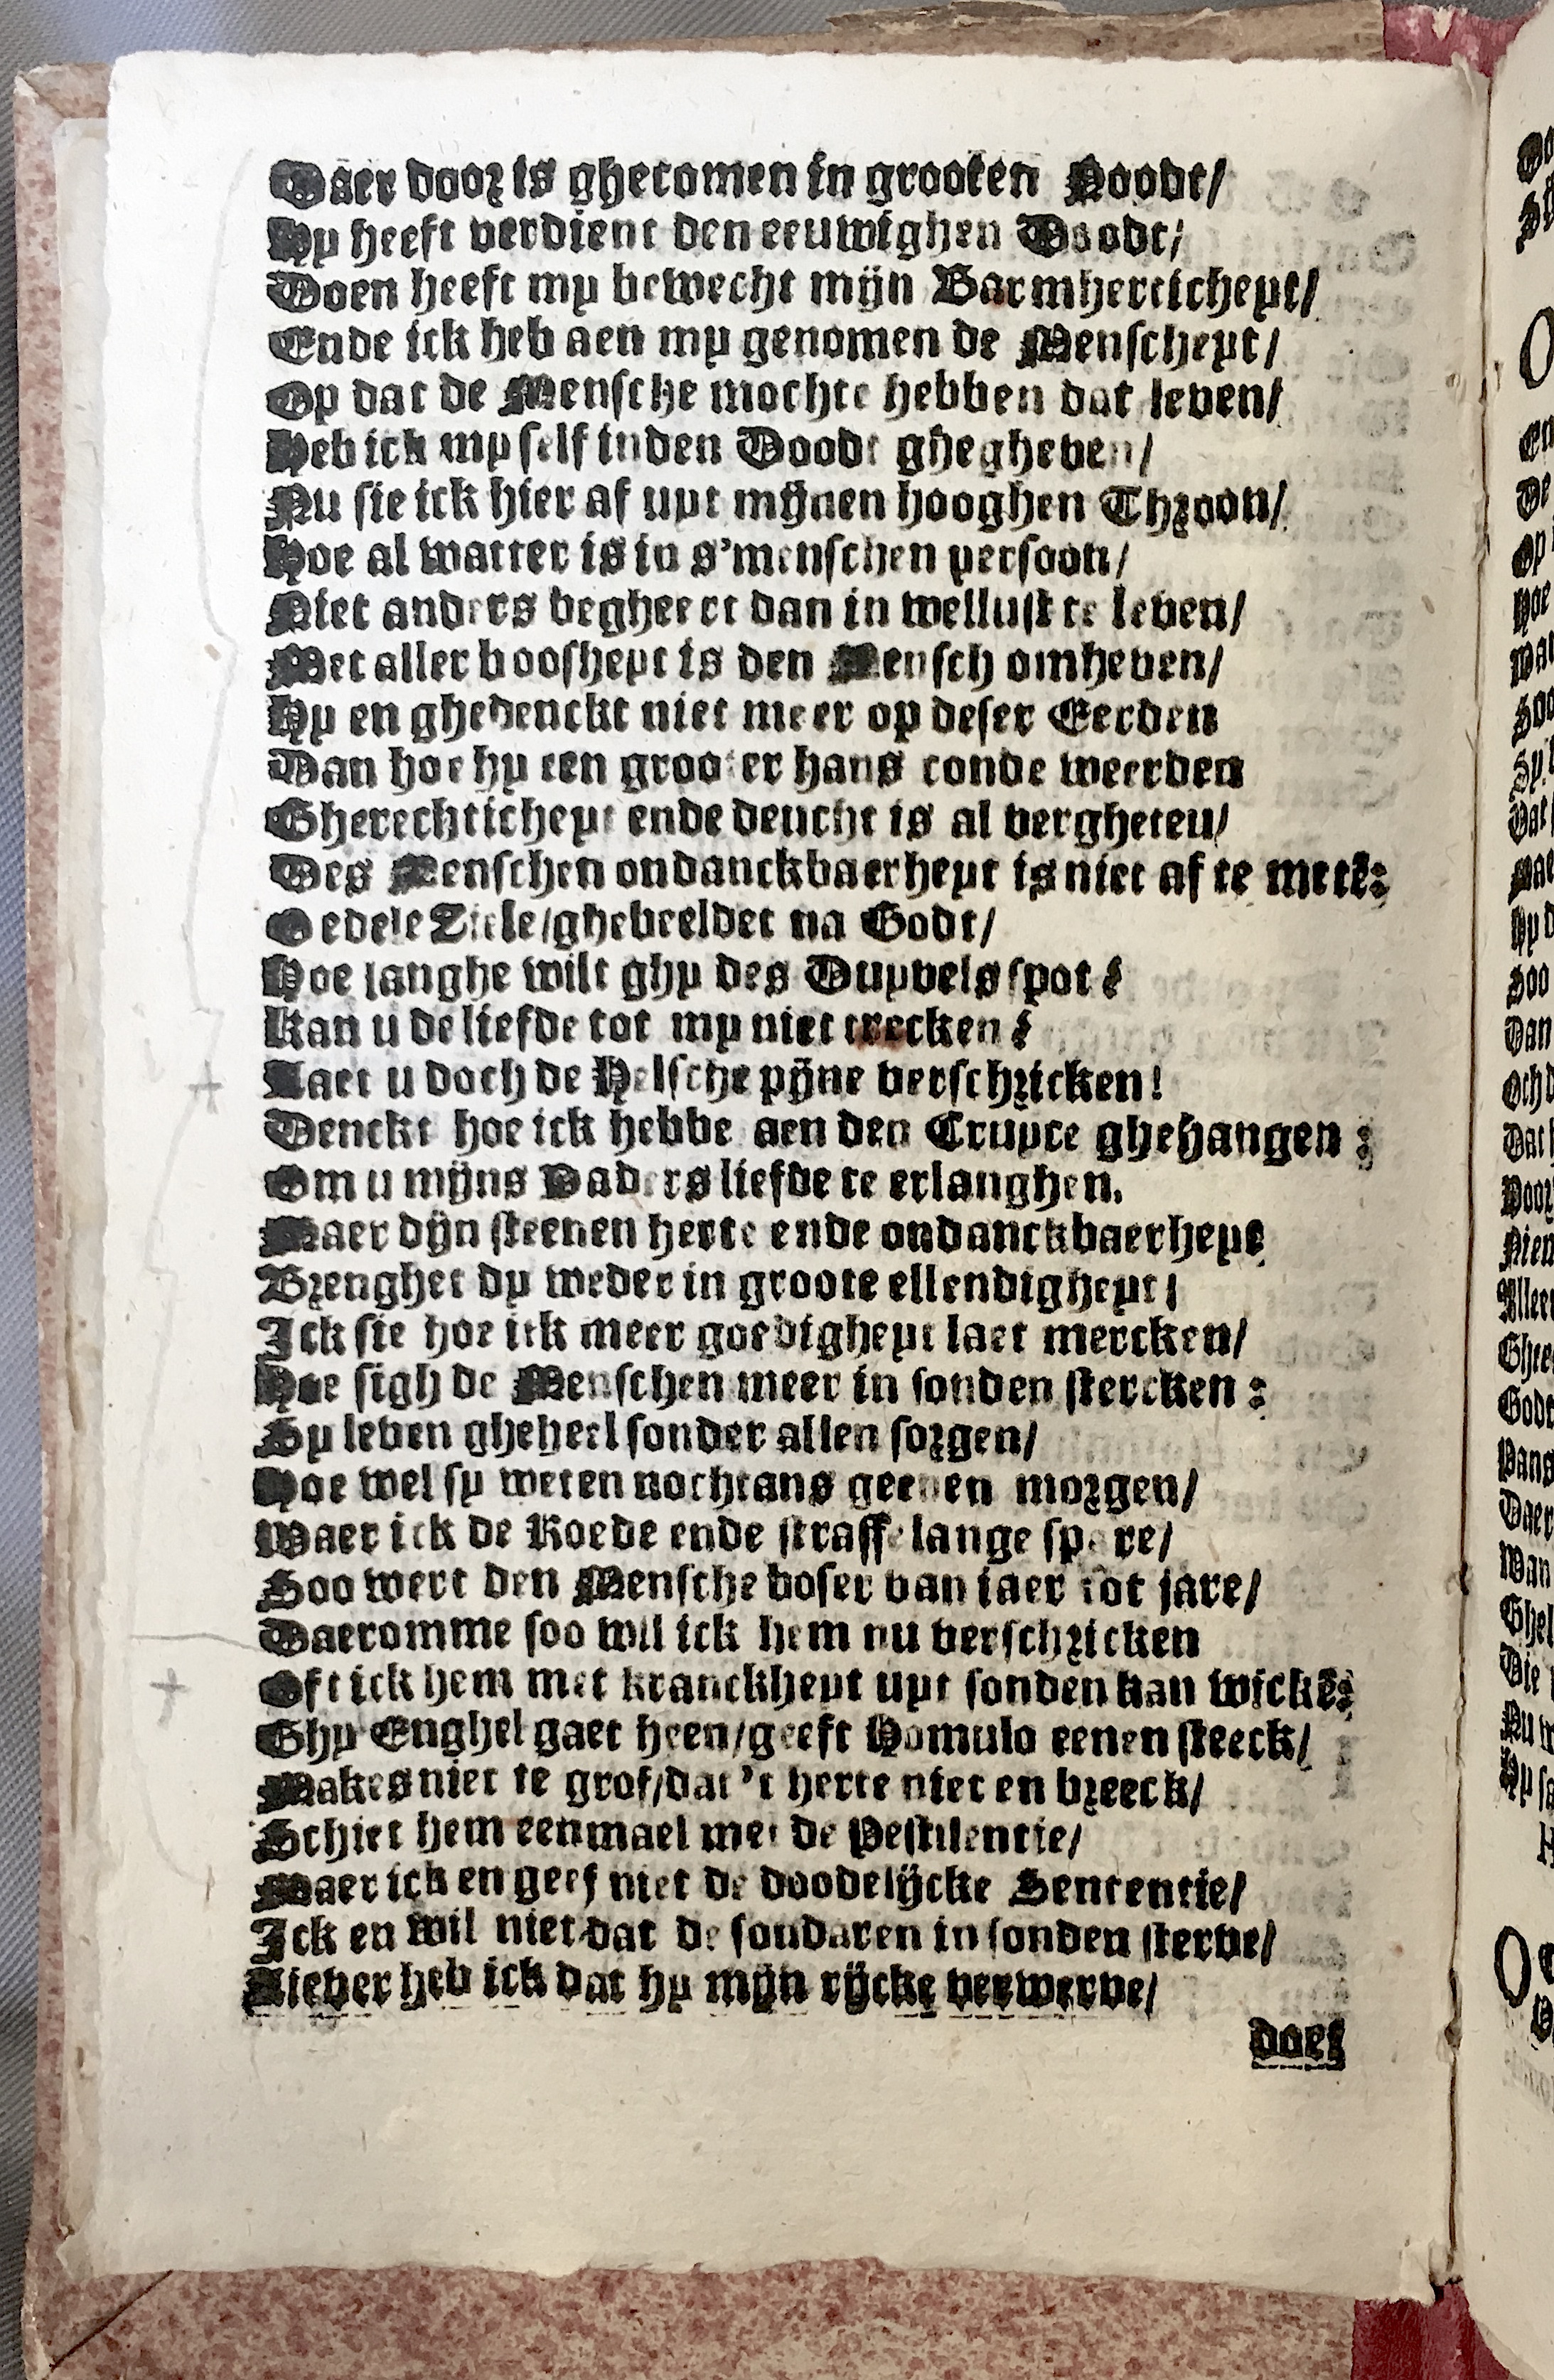 Daer door is ghecomen in grooten Noodt/
Hy heeft verdient den eeuwighen Doodt/
Doen heeft my bewecht mijn Barmherticheyt/
Ende ick heb aen my genomen de Menscheyt/
Op dat de Mensche mochte hebben dat leven/
Heb ick my self inden Doodt ghegheven/
Nu sie ick hier af uyt mijnen hooghen Throon/
Hoe al watter is in s'menschen persoon/
Niet anders begheert dan in wellust te leven/
Met aller boosheyt is den Mensch omheven/
Hy en ghedenckt niet meer op deser Eerden
Dan hoe hy een grooter hans conde weerden
Gherechticheyt ende deucht is al vergheten/
Des Menschen ondanckbaerheyt is niet af te metē:
O edele Ziele/ghebeeldet na Godt/
Hoe langhe wilt ghy des Duyvels spot?
Kan u de liefde tot my niet trecken?
Laet u doch de Helsche pijne verschricken!
Denckt hoe ick hebbe aen den Cruyce ghehangen:
Om u mijns Vaders liefde te erlanghen.
Maer dijn steenen herte ende ondanckbaerheyt
Brenghet dy weder in groote ellendigheyt/
Ick sie hoe ick meer goedigheyt laet mercken/
Hoe sigh de Menschen meer in sonden stercken:
Sy leven gheheel sonder allen sorgen/
Hoe wel sy weten nochtans geenen morgen/
Waer ick de Roede ende straffe lange spare/
Soo wert den Mensche boser van jaer tot jare/
Daeromme soo wil ick hem nu verschricken
Oft ick hem met kranckheyt uyt sonden kan wickē:
Ghy Enghel gaet heen/geeft Homulo eenen steeck/
Makes niet te grof/dat 't herte niet en breeck/
Schiet hem eenmael met de Pestilentie/
Maer ick en geef niet de doodelijcke Sententie/
Ick en wil niet dat de sondaren in sonden sterve/
Liever heb ick dat hy mijn rijcke verwerve/